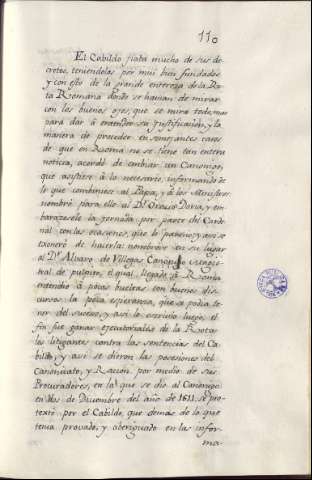 110
El Cabildo fiata mucho de sus de-
cretos, teniendolos por mui bien fundados
y con esto de la grande entereza de la Ro-
ta Romana donde se havian de mirar
con los buenos ojos, que se mira todo, mas
para dar á entender su justificacion, y la
manera de proceder en semejantes casos
de que en Roma no se tiene tan entera
noticia, acordó de embiar un Canonigo,
que asistiere á lo necesario, informando de
lo que combiniese al Papa, y á los Ministros
nombró para ello al Dr. Orozco Doria, y em-
barazosele la jornada por parte del Carde-
nal con las ocasiones, que le parecio, y asi se
exoneró de hacerla: nombrose en su lugar
al Dr. Alvaro de Villegas Canonigo Magis-
tral de pulpito, el qual llegado á Roma
entendio á pocas bueltas con buenos dis-
cursos la poca esperanza, que se podia te-
ner del suceso, y asi lo escrivio luego, el
fin fue ganar executoriales de la Rota
los litigantes contra las sentencias del Ca-
bildo, y asi se dieron las posesiones del
Canonicato, y Racion por medio de sus
Procuradores, en la que se dio al Canonigo
en dos de Diciembre del año de 1611. se pro-
textó por el Cabildo, que demás de lo que
tenia provado, y aberiguado en las infor-
ma-